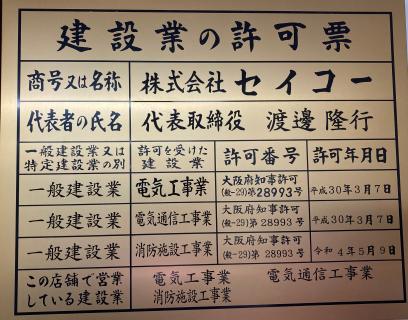 建設業の許可票
商号又は名称 株式会社 セイコー
代表者の氏名 代表取締役 渡邊 隆行
一般建設業又は特定建設業の別 許可を受けた建設業 許可番号 許可年月日
一般建設業 電気工事業 大阪府知事許可(般-29)第28993号 平成30年3月7日
一般建設業 電気通信工事業 大阪府知事許可(般-29)第28993号 平成30年3月7日
一般建設業 消防施設工事業 大阪府知事許可(般-29)第28993号 令和4年5月9日
この店舗で営業している建設業 電気工事業 電気通信工事業
消防施設工事業